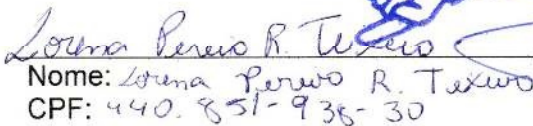 Lorena Pereira R. Teixeira
Nome: Lorena Pereira R. Teixeira
CPF: 440.851-936-30